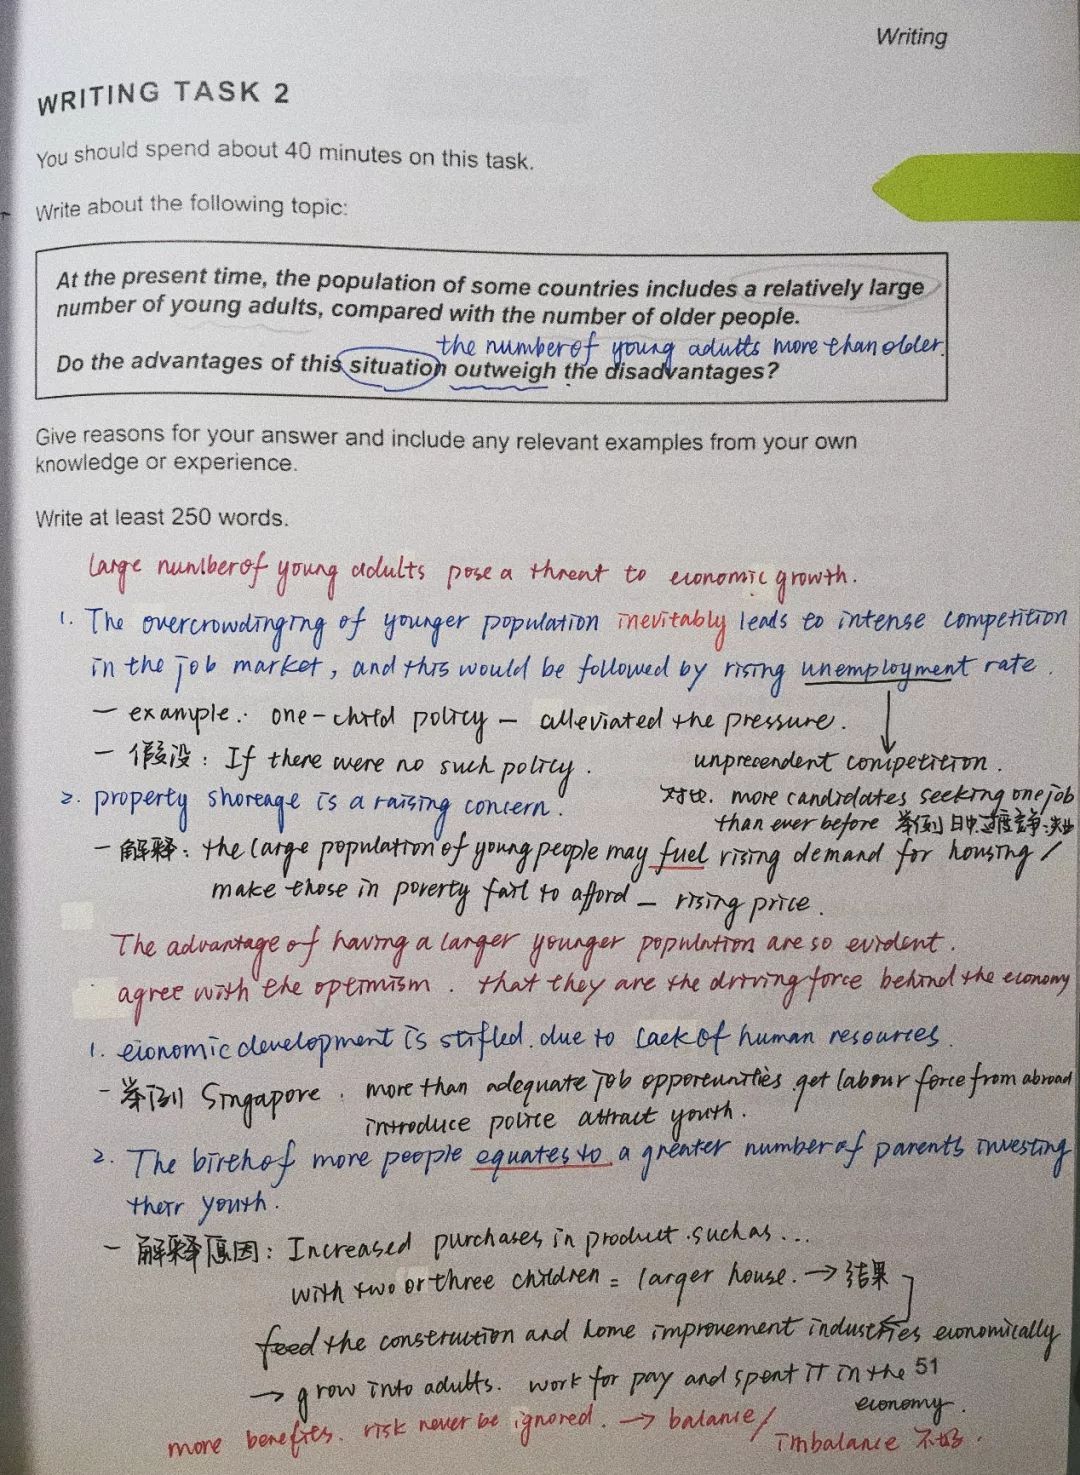 Writing
WRITING TASK 2
You should spend about 40 minutes on this task.
Write about the following topic:
At the present time, the population of some countries includes a relatively large
number of young adults, compared with the number of older people.
the number of young adults more than older.
Do the advantages of this situation outweigh the disadvantages?
Give reasons for your answer and include any relevant examples from your own
knowledge or experience.
Write at least 250 words.
large number of young adults pose a threat to economic growth.
1. The overcrowdinging of younger population inevitably leads to intense competition
in the job market, and this would be followed by rising unemployment rate.
— example: one-child policy — alleviated the pressure.
— 假设: If there were no such policy.
unprecendent competition.
2. property shoreage is a raising concern.
对比. more candidates seeking one job
than ever before 举例 日中过度竞争:
— 解释: the large population of young people may fuel rising demand for housing /
make those in poverty fail to afford — rising price.
The advantage of having a larger younger population are so evident.
agree with the optimism. that they are the driving force behind the economy
1. economic development is stifled due to lack of human resources.
— 举例 Singapore. more than adequate job opportunities get labour force from abroad
introduce police attract youth.
2. The birth of more people equates to a greater number of parents investing
their youth.
— 解释原因: Increased purchases in product. such as...
with two or three children = larger house. → 结果
feed the construction and home improvement industries economically
→ grow into adults. work for pay and spent it in the
economy.
51
more benefits. risk never be ignored. → balance/
imbalance 不好.